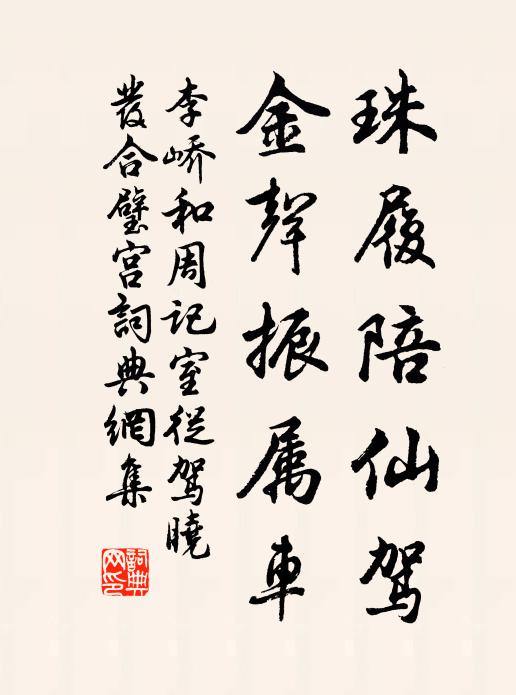 珠履陪仙驾
金聲振属車
李峤和周记室從驾曉
發合璧宫詞典網集
詞典网印